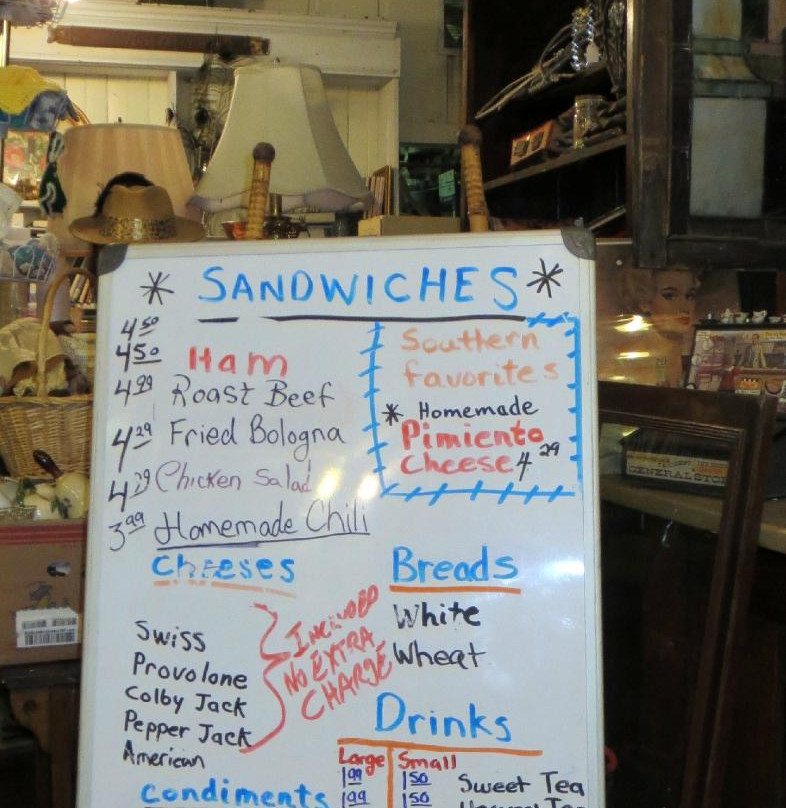 * SANDWICHES *
4.50
4.50 Ham
4.99 Roast Beef
4.29 Fried Bologna
4.29 Chicken Salad
3.99 Homemade Chili
Southern
favorites
* Homemade
Pimiento
Cheese 4.29
Cheeses
Swiss
Provolone
Colby Jack
Pepper Jack
American
INCLUDED
NO EXTRA
CHARGE
Breads
White
Wheat
Drinks
Large Small
1.99 1.50 Sweet Tea
1.99 1.50
Condiments
GENERAL STORE